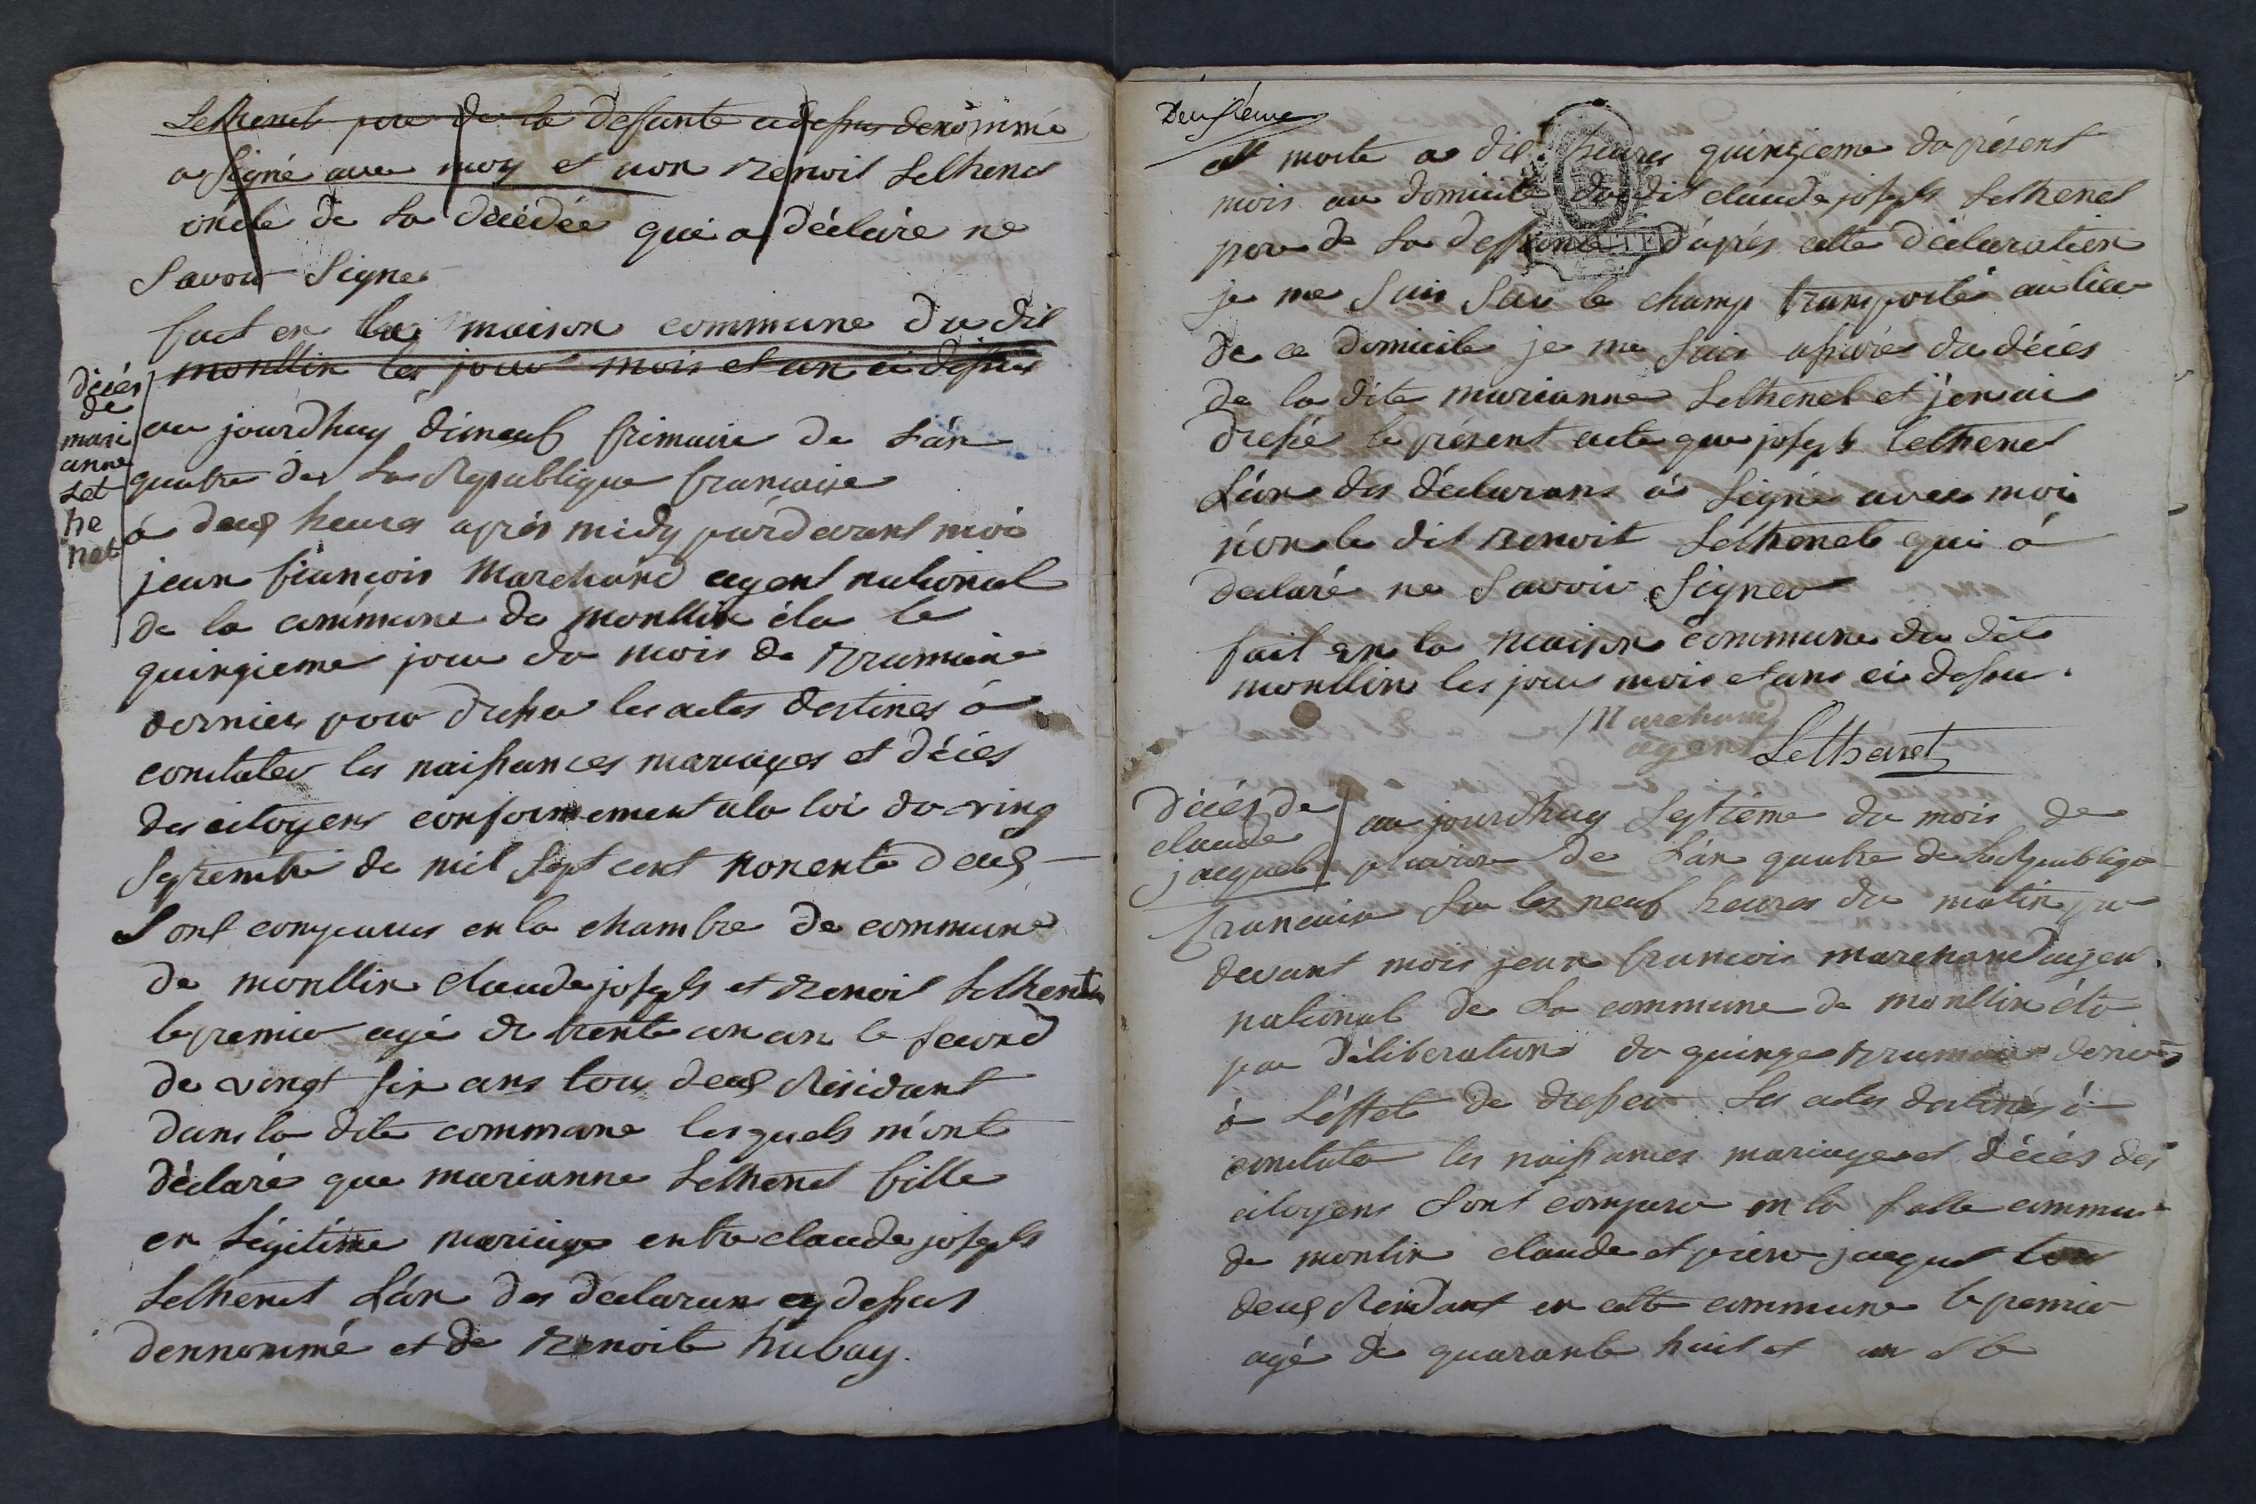 Lethenet pere de la defunte cidessus denommé
a signé avec moy et non Benoit Lethenet
oncle de la décédée qui a déclaré ne
Savoir Signer
fait en la maison commune du dit
montlin les jour mois et an ci dessus
décés
de
mari
anne
Let
he
net
au jourdhuy dineuf frimaire de L'an
quatre de La Republique francaise
á deux heures aprés midy pardevant moi
jean francois Marchand agent national
de la commune de montlin élu le
quinzieme jour du mois de Brumaire
dernier pour dresser les actes destinés á
constater les naissances mariages et décés
des citoyens conformement ala loi du ving
Septembre de mil Sept cent nonente deux
Sont comparus en la chambre de commune
de montlin Claude joseph et Benoit Lethenet
le premier agé de trente un an le second
de vingt six ans tous deux Résidant
dans la dite commune lesquels m'ont
déclaré que marianne Lethenet fille
en Légitime mariage entre claude joseph
Lethenet L'un des declarans cy dessus
dennommé et de Benoite hubay.
Deuxiéme
est morte a dix heures quinzieme du présent
mois au domicile du dit claude joseph Lethenet
pere de La deffunte d'aprés cette déclaration
je me Suis Sur le champ transporté au lieu
de ce domicile je me Suis assuré du décés
de la dite marianne Lethenet et j'en ai
dressé le présent acte que joseph Lethenet
L'un des déclarans á Signé avec moi
non le dit Benoit Lethenet qui á
declaré ne Savoir Signer
fait en la maison commune du dit
montlin les jour mois et ans ci dessu.
Marchand
agent Lethenet
Décés de
claude
jacquet
au jourdhuy Septieme du mois de
pluviose de L'an quatre de La Republique
francaise Sur les neuf heures du matin par
devant mois jean francois marchand agen
national de La commune de montlin élu
par déliberation du quinze Brumaire dernier
á L'effet de dresser Les actes destinés á
constater les naissances mariages et décés des
citoyens Sont comparu en la Salle commu
de montlin claude et pierre jacquet tous
deux Résidant en cette commune le premier
agé de quarante huit et le